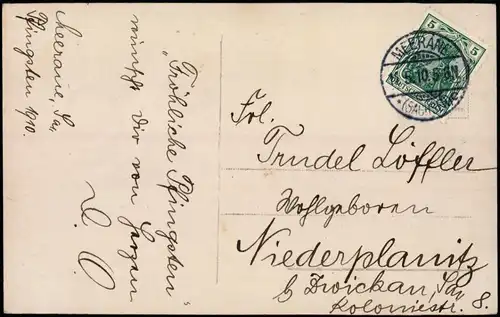 Meerane, Sa,
Pfingsten 1910.
"Fröhliche Pfingsten"
wünscht Dir von Herzen
D. O.
5 5
MEERANE
10. 5-6N
*(SACHSEN)
Frl.
Trudel Löffler
Wohlgeboren
Niederplanitz
b Zwickau, Sa,
Koloniestr. 8.